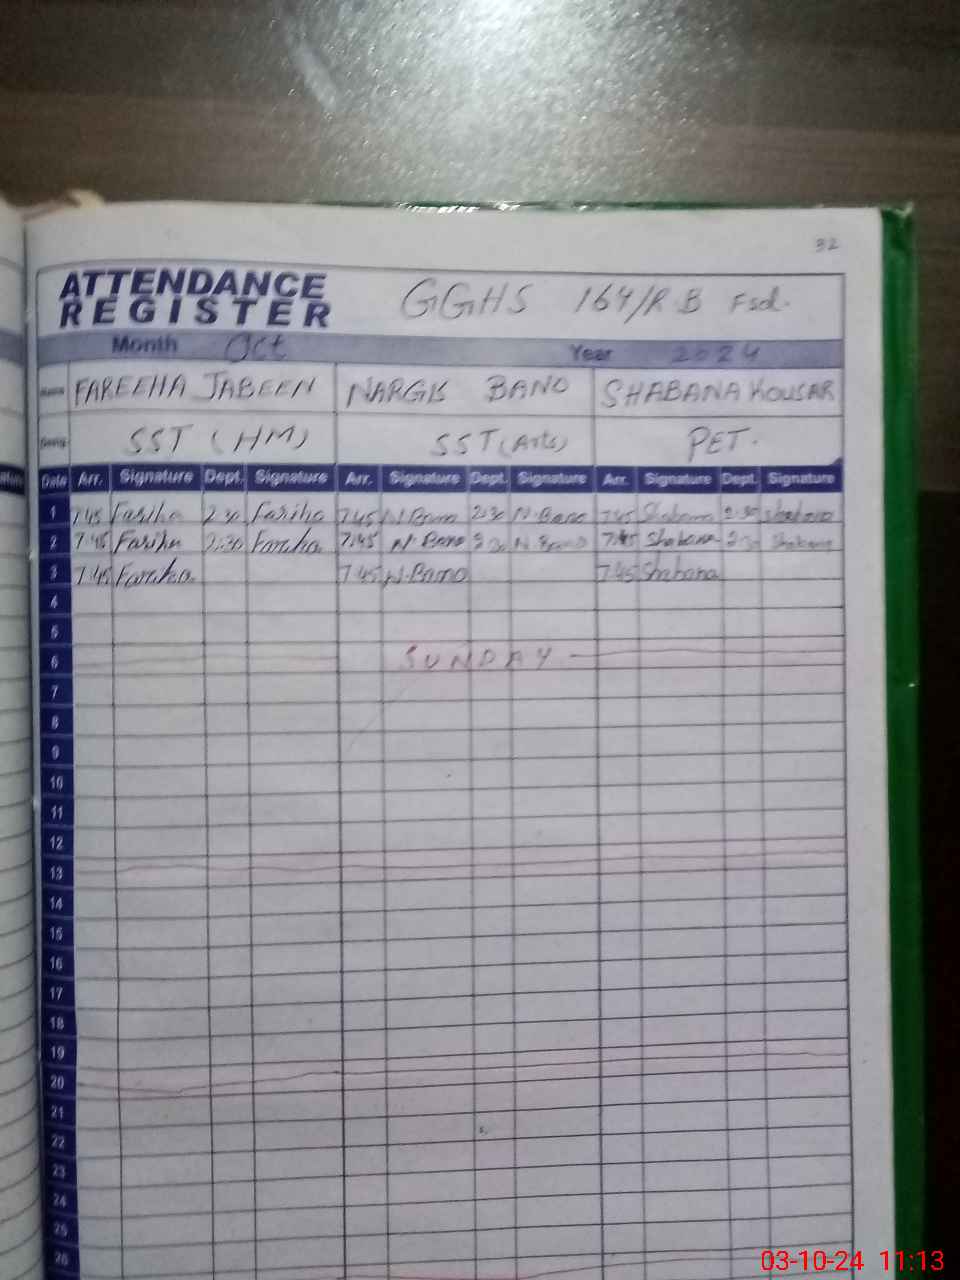 32
ATTENDANCE
REGISTER
GGHS 164/R B Fsd.
Month Oct Year 2024
Name FAREEHA JABEEN NARGIS BANO SHABANA KOUSAR
Desig: SST (HM) SST (Arts) PET.
Date Arr. Signature Dept. Signature Arr. Signature Dept. Signature Arr. Signature Dept. Signature
1 7:45 Fariha 2:30 Fariha 7:45 N.Bano 2:30 N.Bano 7:45 Shabana 2:30 Shabana
2 7:45 Fariha 2:30 Fariha 7:45 N.Bano 2:30 N.Bano 7:45 Shabana 2:30 Shabana
3 7:45 Fariha 7:45 N.Bano 7:45 Shabana
4
5
6 SUNDAY
7
8
9
10
11
12
13
14
15
16
17
18
19
20
21
22
23
24
25
26
03-10-24 11:13